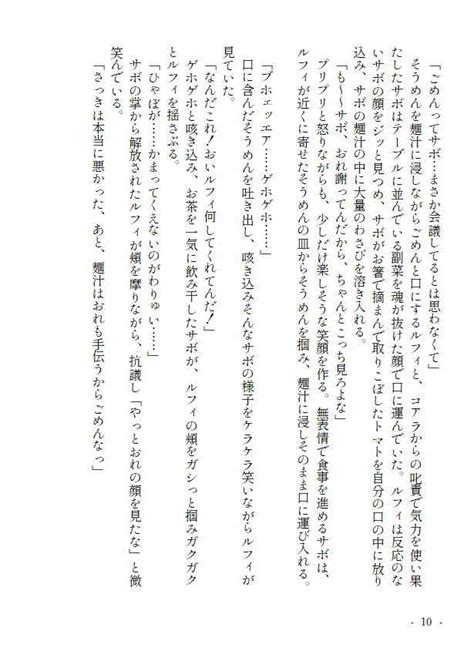 「ごめんってサボ…まさか会議してるとは思わなくて」
そうめんを麺汁に浸しながらごめんと口にするルフィと、コアラからの叱責で気力を使い果
たしたサボはテーブルに並んでいる副菜を魂が抜けた顔で口に運んでいた。ルフィは反応のな
いサボの顔をジッと見つめ、サボがお箸で摘まんで取りこぼしたトマトを自分の口の中に放り
込み、サボの麺汁の中に大量のわさびを溶き入れる。
「も〜〜サボ、おれ謝ってんだから、ちゃんとこっち見ろよな」
プリプリと怒りながらも、少しだけ楽しそうな笑顔を作る。無表情で食事を進めるサボは、
ルフィが近くに寄せたそうめんの皿からそうめんを掴み、麺汁に浸しそのまま口に運び入れる。
「ブホェッエア……ゲホゲホ……」
口に含んだそうめんを吐き出し、咳き込みそんなサボの様子をケラケラ笑いながらルフィが
見ていた。
「なんだこれ！おいルフィ何してくれてんだ！」
ゲホゲホと咳き込み、お茶を一気に飲み干したサボが、ルフィの頬をガシっと掴みガクガク
とルフィを揺さぶる。
「ひゃぼが……かまってくえないのがわりゅい……」
サボの掌から解放されたルフィが頬を摩りながら、抗議し「やっとおれの顔を見たな」と微
笑んでいる。
「さっきは本当に悪かった、あと、麺汁はおれも手伝うからごめんなっ」
- 10 -